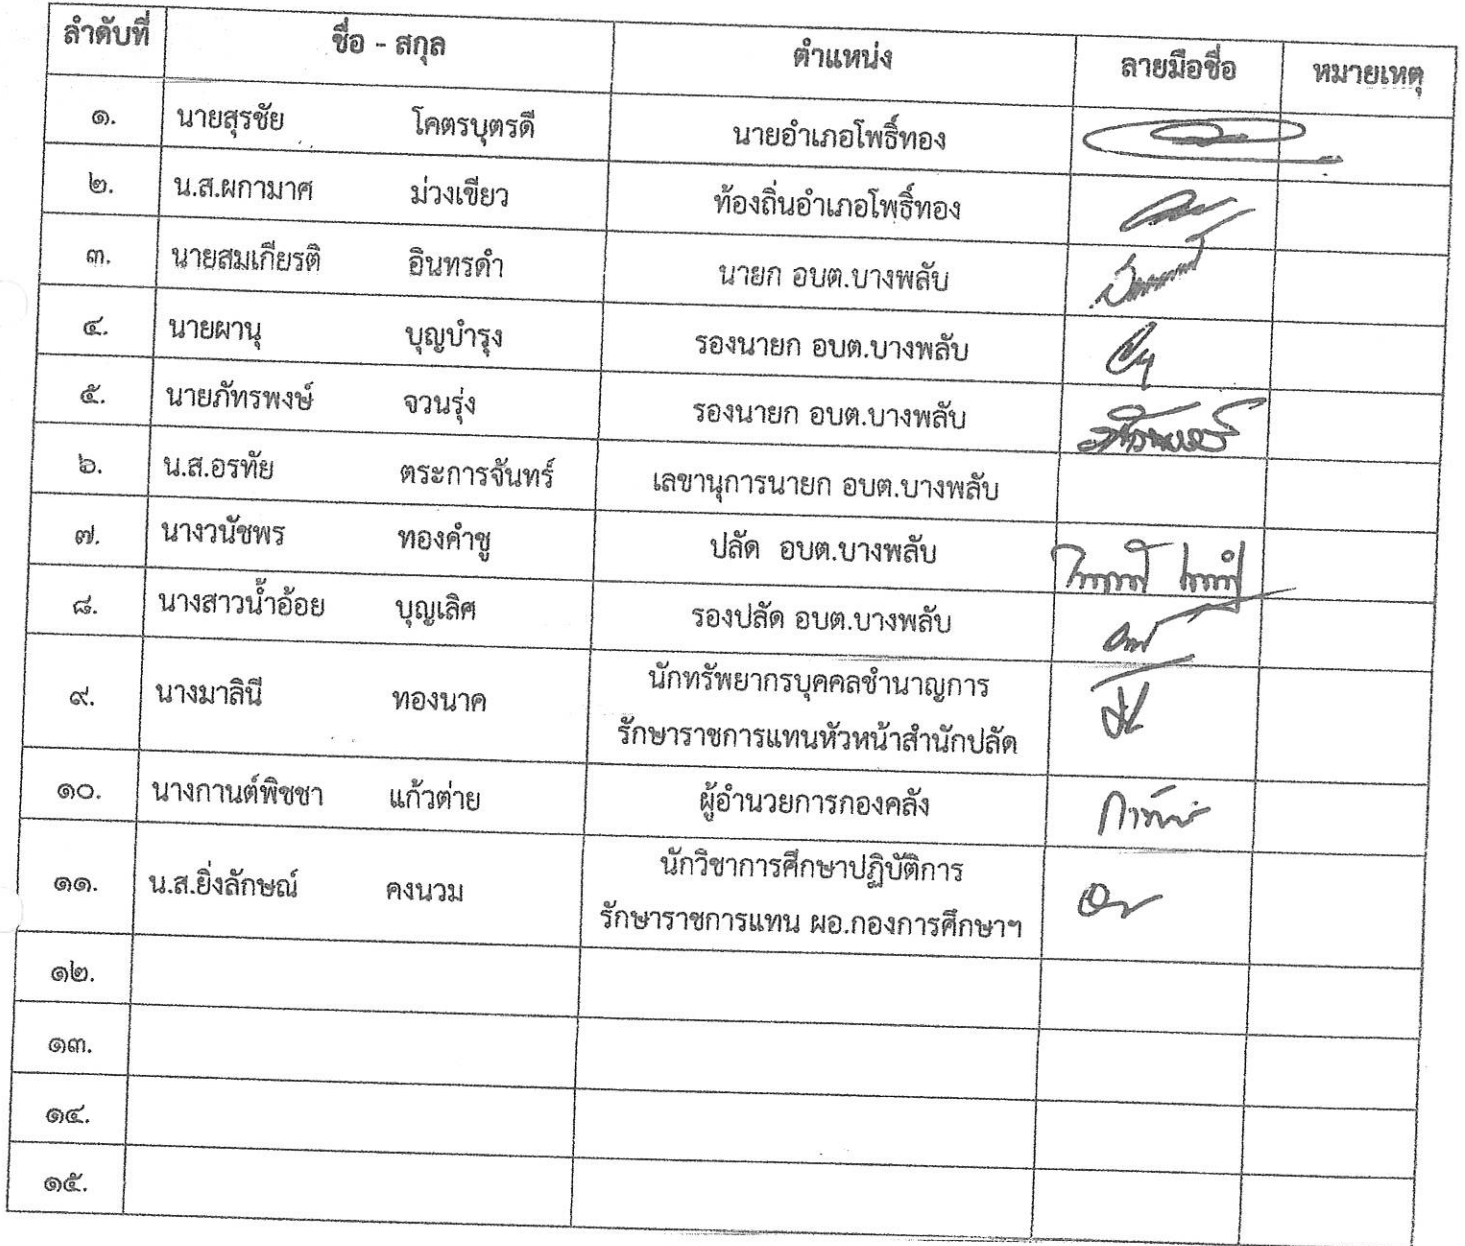 ลำดับที่ ชื่อ - สกุล ตำแหน่ง ลายมือชื่อ หมายเหตุ
๑. นายสุรชัย โคตรบุตรดี นายอำเภอโพธิ์ทอง
๒. น.ส.ผกามาศ ม่วงเขียว ท้องถิ่นอำเภอโพธิ์ทอง
๓. นายสมเกียรติ อินทรดำ นายก อบต.บางพลับ
๔. นายผานุ บุญบำรุง รองนายก อบต.บางพลับ
๕. นายภัทรพงษ์ จวนรุ่ง รองนายก อบต.บางพลับ
๖. น.ส.อรทัย ตระการจันทร์ เลขานุการนายก อบต.บางพลับ
๗. นางวนัชพร ทองคำชู ปลัด อบต.บางพลับ
๘. นางสาวน้ำอ้อย บุญเลิศ รองปลัด อบต.บางพลับ
๙. นางมาลินี ทองนาค นักทรัพยากรบุคคลชำนาญการ
รักษาราชการแทนหัวหน้าสำนักปลัด
๑๐. นางกานต์พิชชา แก้วต่าย ผู้อำนวยการกองคลัง
๑๑. น.ส.ยิ่งลักษณ์ คงนวม นักวิชาการศึกษาปฏิบัติการ
รักษาราชการแทน ผอ.กองการศึกษาฯ
๑๒.
๑๓.
๑๔.
๑๕.